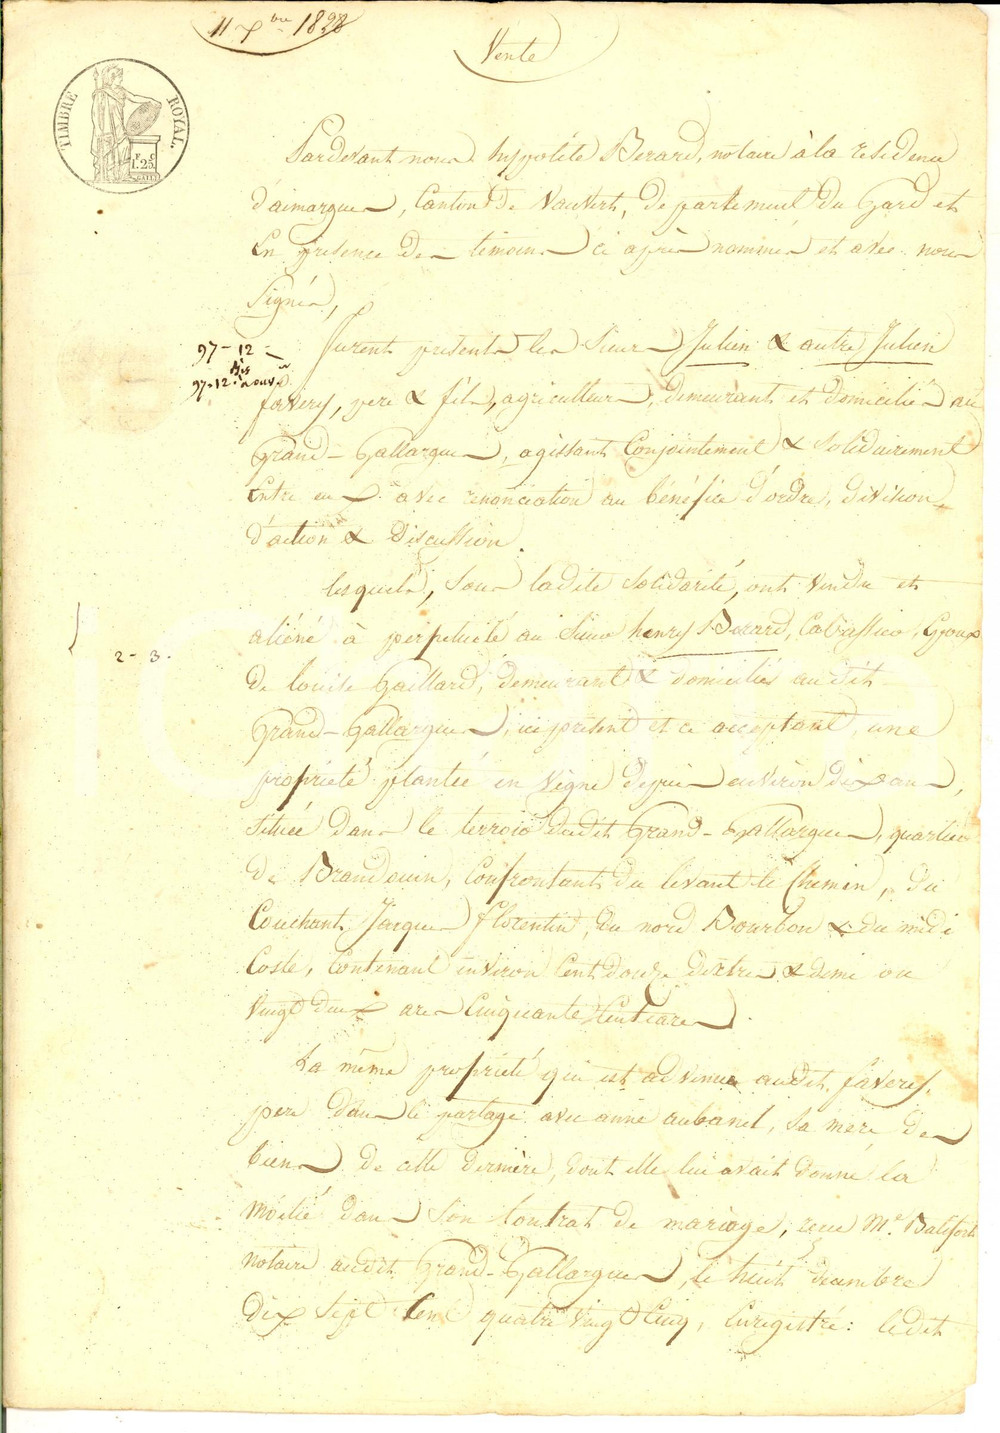 11 Xbre 1828
Vente
TIMBRE ROYAL.
F. C.
1.25
Pardevant nous hyppolite Berard, notaire à la residence
d'aimargues, Canton de Vauvert, departement du Gard et
En présence des temoins ci après nommés et avec nous
Signés,
97-12
97-12 bis nouv.
furent présents les Sieurs Julien & autre Julien
favery, pere & fils, agriculteurs, demeurant et domiciliés au
Grand-Gallargues, agissant Conjointement & Solidairement
Entre eux avec renonciation au bénéfice d'ordre, division
d'action & Discussion.
lesquels, Sous ladite Solidarité, ont vendu et
aliéné à perpétuité au Sieur henry Berard, Epoux
2-3.
de louise Gaillard, demeurant & domiciliés audit
Grand-Gallargues, ici présent et ce acceptant, une
propriété plantée en vigne depuis environ dix ans,
Située dans le terroir dudit Grand-Gallargues, quartier
de Brandouin, Confrontant du levant le Chemin, du
Couchant Jacques florentin, du nord Bourbon & du midi
Coste, Contenant environ Cent douze dextres & demi ou
vingt deux ares Cinquante Centiares.
La même propriété qui est advenue audit favery,
pere dans le partage avec anne aubanel, Sa mère des
biens de cette dernière, dont elle lui avait donné la
Moitié dans Son Contrat de mariage, reçu Me. Batifort
notaire audit Grand-Gallargues, le huit decembre
Dix Sept Cent quatre vingt Cinq, Enregistré: ledit